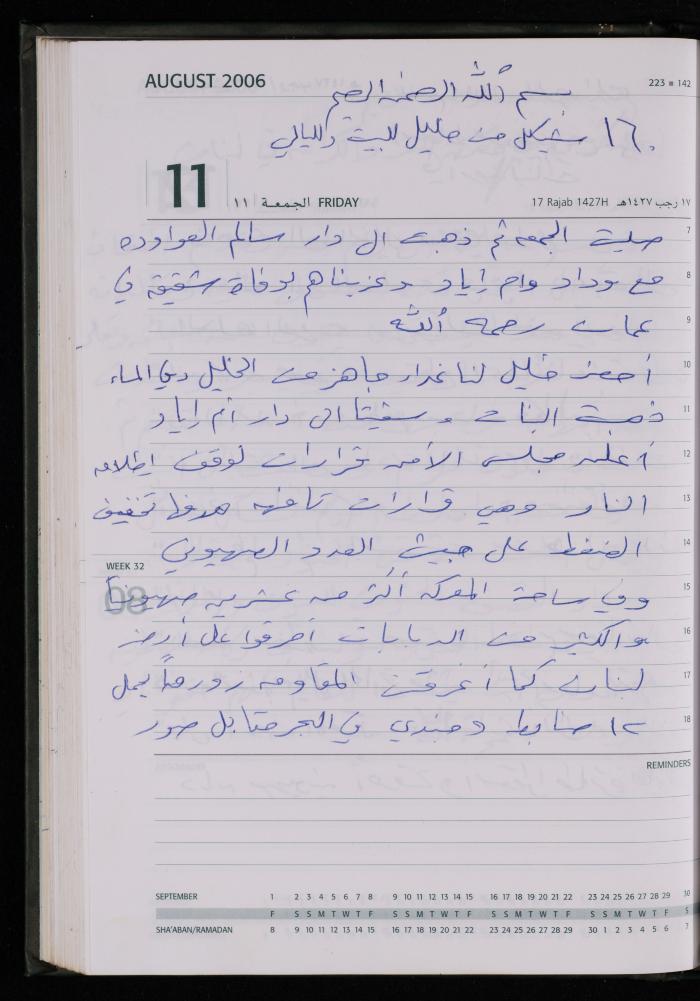 AUGUST 2006
223 ■ 142
بسم ألله الرحمن الرحيم
١٦٠ شيكل من خليل للبيت والليالي
11
١١ الجمعة FRIDAY
17 Rajab 1427H ١٧ رجب ١٤٢٧هـ
7 صليت الجمعه ثم ذهبت الى دار سالم العواوده
8 مع وداد وام إياد وعزيناهم بوفاة شقيقه في
9 عمان رحمه ألله
10 أحضر خليل لنا غداء جاهز من الخليل وفي المساء
11 ذهبت البنات وستيتا الى دار أم إياد
12 أعلن مجلس الأمن قرارات لوقف إطلاق
13 النار وهي قرارات تافهه هدفها تخفيف
14 الضغط على جيش العدو الصهيوني
WEEK 32
08
15 وفي ساحة المعركه أكثر من عشرين صهيونياً
16 والكثير من الدبابات أحرقوا على أرض
17 لبنان كما أغرقت المقاومه زورقاً يحمل
18 ١٢ ضابط وجندي في البحر مقابل صور
REMINDERS
SEPTEMBER 1 2 3 4 5 6 7 8 9 10 11 12 13 14 15 16 17 18 19 20 21 22 23 24 25 26 27 28 29 30
F S S M T W T F S S M T W T F S S M T W T F S S M T W T F S
SHA'ABAN/RAMADAN 8 9 10 11 12 13 14 15 16 17 18 19 20 21 22 23 24 25 26 27 28 29 30 1 2 3 4 5 6 7